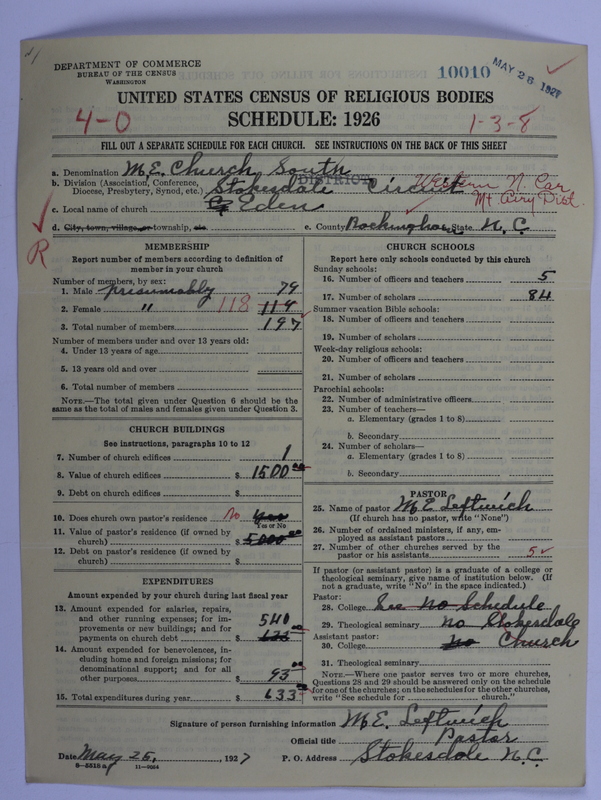 DEPARTMENT OF COMMERCE
BUREAU OF THE CENSUS
WASHINGTON
10010
MAY 28 1927
UNITED STATES CENSUS OF RELIGIOUS BODIES
4-0
SCHEDULE: 1926
1-3-8
FILL OUT A SEPARATE SCHEDULE FOR EACH CHURCH. SEE INSTRUCTIONS ON THE BACK OF THIS SHEET
a. Denomination M.E. Church South
b. Division (Association, Conference, Diocese, Presbytery, Synod, etc.) Stokesdale Circuit DISTRICT Western N. Car
Mt Airy Dist.
c. Local name of church Eden
d. City, town, village, or township, etc. e. County Rockingham State N.C.
R
MEMBERSHIP
Report number of members according to definition of
member in your church
Number of members, by sex:
1. Male presumably 79
2. Female " 118 114
3. Total number of members 197
Number of members under and over 13 years old:
4. Under 13 years of age
5. 13 years old and over
6. Total number of members
NOTE.—The total given under Question 6 should be
same as the total of males and females given under Question 3.
CHURCH BUILDINGS
See instructions, paragraphs 10 to 12
7. Number of church edifices 1
8. Value of church edifices $ 1500 00
9. Debt on church edifices $
10. Does church own pastor's residence No Yes
Yes or No
11. Value of pastor's residence (if owned by
church) $ 5000 00
12. Debt on pastor's residence (if owned by
church) $
EXPENDITURES
Amount expended by your church during last fiscal year
13. Amount expended for salaries, repairs,
and other running expenses; for im-
provements or new buildings; and for
payments on church debt $ 540
14. Amount expended for benevolences, in-
cluding home and foreign missions; for
denominational support; and for all
other purposes $ 93 00
15. Total expenditures during year $ 633
CHURCH SCHOOLS
Report here only schools conducted by this church
Sunday schools:
16. Number of officers and teachers 5
17. Number of scholars 84
Summer vacation Bible schools:
18. Number of officers and teachers
19. Number of scholars
Week-day religious schools:
20. Number of officers and teachers
21. Number of scholars
Parochial schools:
22. Number of administrative officers
23. Number of teachers—
a. Elementary (grades 1 to 8)
b. Secondary
24. Number of scholars—
a. Elementary (grades 1 to 8)
b. Secondary
PASTOR
25. Name of pastor M E Leftwich
(If church has no pastor, write "None")
26. Number of ordained ministers, if any, em-
ployed as assistant pastors
27. Number of other churches served by the
pastor or his assistants 5
If pastor (or assistant pastor) is a graduate of a college or
theological seminary, give name of institution below. (If
not a graduate, write "No" in the space indicated.)
Pastor:
28. College See no Schedule
29. Theological seminary no Stokesdale
Assistant pastor:
30. College no Church
31. Theological seminary
NOTE.—Where one pastor serves two or more churches,
Questions 28 and 29 should be answered only on the schedule
for one of the churches; on the schedules for the other churches,
write "See schedule for church."
Signature of person furnishing information M.E. Leftwich
Official title Pastor
Date May 25, 1927 P. O. Address Stokesdale N.C.
8-5518a 11-9064